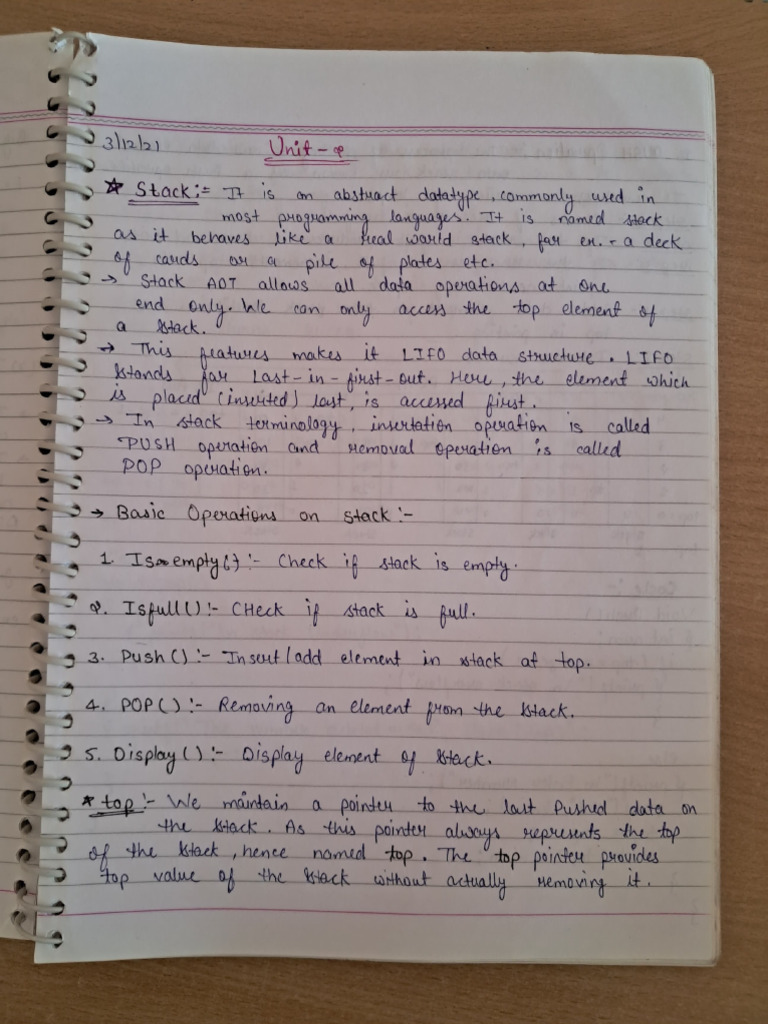 3/12/21
Unit-2
* Stack:- It is an abstract datatype, commonly used in
most programming languages. It is named stack
as it behaves like a real world stack, for ex. - a deck
of cards or a pile of plates etc.
→ Stack ADT allows all data operations at one
end only. We can only access the top element of
a stack.
→ This features makes it LIFO data structure. LIFO
stands for Last-in-first-out. Here, the element which
is placed (inserted) last, is accessed first.
→ In stack terminology, insertation operation is called
PUSH operation and removal operation is called
POP operation.
→ Basic Operations on stack:-
1. Isempty():- Check if stack is empty.
2. Isfull():- CHeck if stack is full.
3. Push():- Insert/add element in stack at top.
4. POP():- Removing an element from the stack.
5. Display():- Display element of stack.
* top:- We maintain a pointer to the last Pushed data on
the stack. As this pointer always represents the top
of the stack, hence named top. The top pointer provides
top value of the stack without actually removing it.